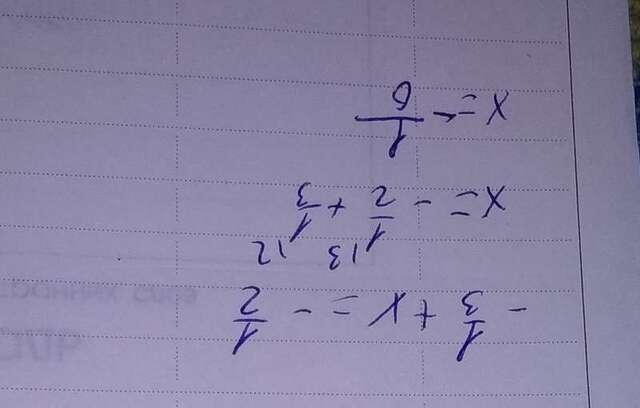 - 1/3 + x = - 1/2
x = - 1/2 \3 + 1/3 \2
x = - 1/6